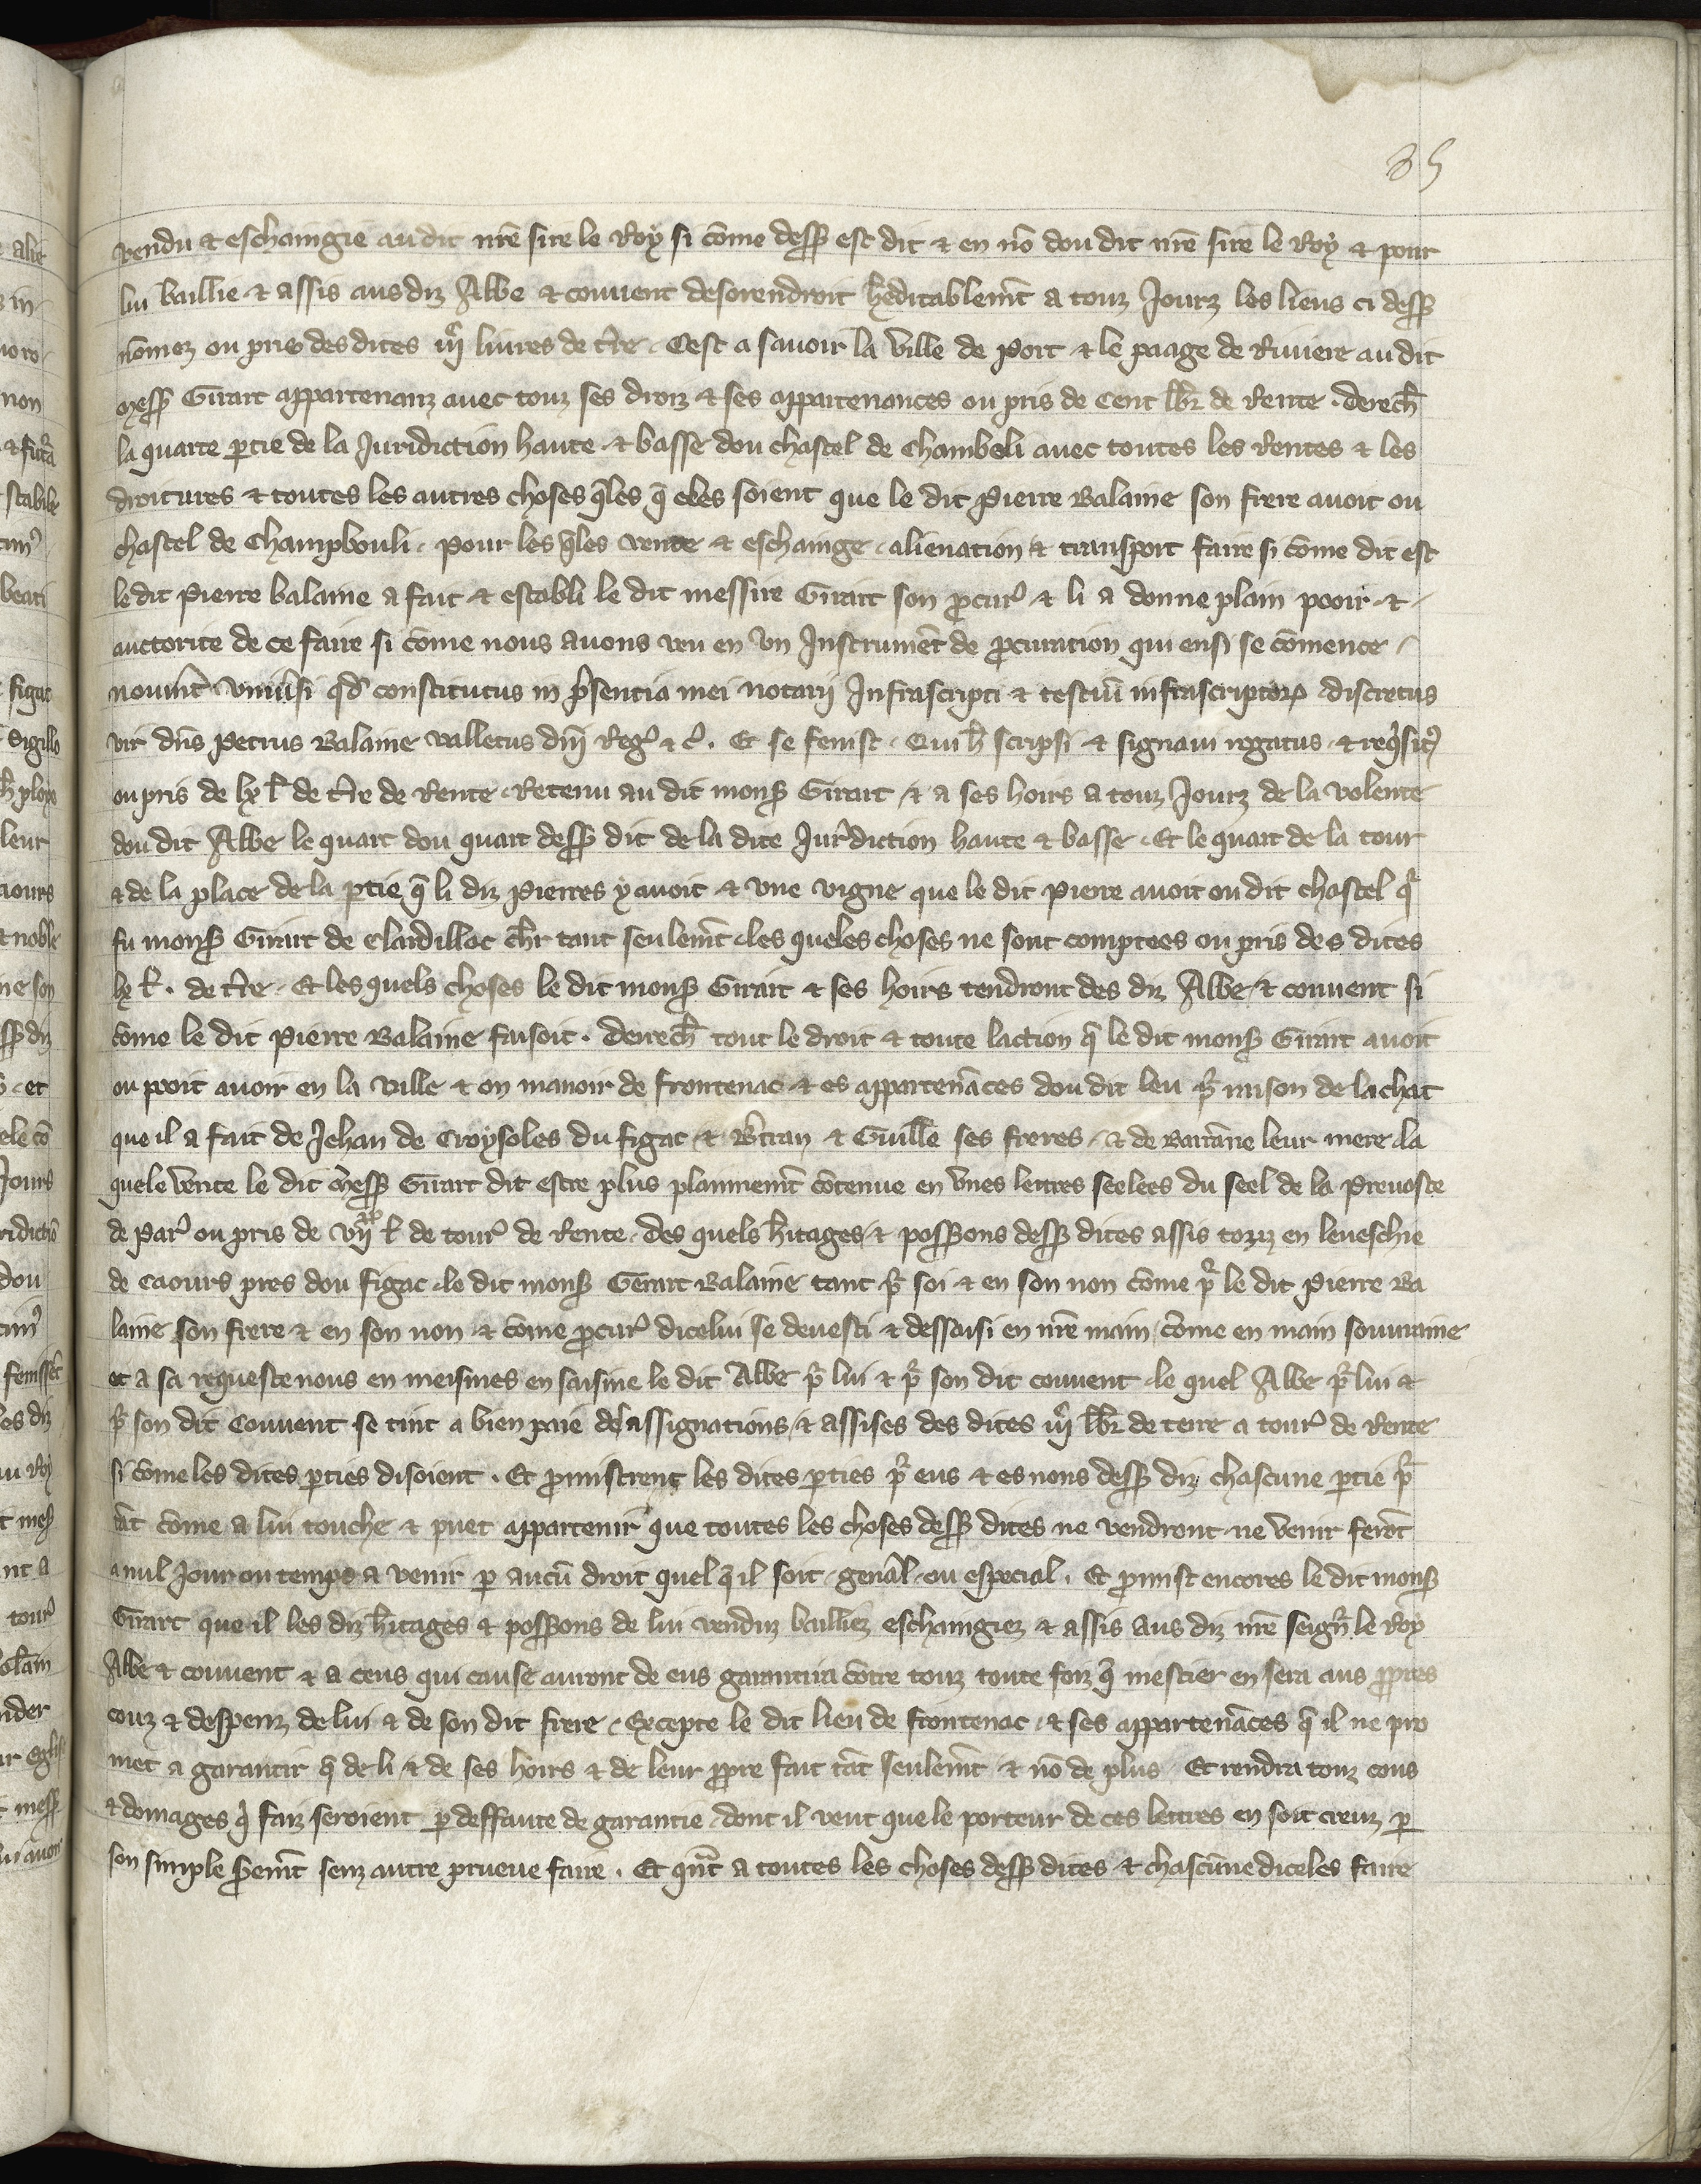 35
vendu & eschaingie audit nr̄e sire le Roy si cōme dess᷎ est dit & en nō dou dit nr̄e sire le Roy & pour
lui baillie & assis ausdiz Abbe & couuent desorendroit h̄editablem̄t a touz Jourz les lieus ci dess᷎
nōmez ou pris des dites liures de t̄re. Cest a sauoir la ville de Port & le paage de Riuiere au dit
mess᷎ Girart appartenanz auec touz ses droiz & ses appartenances ou pris de Cent lb̄r de Rente. derech̄
la quarte ꝑtie de la Juridiction haute & basse dou chastel de Chamboli auec toutes les Rentes & les
droitures & toutes les autres choses q̄les q̄ eles soient que le dit Pierre Balaine son frere auoit ou
chastel de Champbouli. Pour les q̄les vente & eschainge alienation & transport faire si cōme dit est
le dit Pierre balaine a fait & establi le dit messire Girart son ꝓcur᷎ & li a donne plain pooir &
auctorite de ce faire si cōme nous auons veu en vn Instrumēt de ꝓcuration qui ensi se cōmence
nouint̄ vniu̾si qd̄ constitutus in p̄sentia mei notarij Infrascripti & testiū infrascriptoꝝ discretus
vir dn̄s Petrus Balaine valletus dn̄j Reg᷎ & c᷎. Et se fenist. Qui h̄ scripsi & signaui rogatus & req̾sit᷎
ou pris de lx l̄ de t̄re de Rente. Retenu au dit mons᷎ Girart & a ses hoirs a touz Jourz de la volente
dou dit Abbe le quart dou quart dess᷎ dit de la dite Jur̾diction haute & basse. Et le quart de la tour
& de la place de la ꝑtie q̄ li diz Pierres y auoit & vne vigne que le dit Pierre auoit ou dit chastel q̾
fu mons᷎ Girart de Clardillac ch̄r tant seulem̄t. les queles choses ne sont comptees ou pris des dites
lx l̄. de t̄re. Et les quels choses le dit mons᷎ Girart & ses hoirs tendront des diz Abbe & couuent si
cōme le dit Pierre Balaine faisoit. derech̄ tout le droit & toute laction q̄ le dit mons᷎ Girart auoit
ou pooit auoir en la ville & ou manoir de frontenac & es appartenāces dou dit leu p̾ raison de lachat
que il a fait de Jehan de Croysoles du figac & B̾tran & Guille ses freres & de Barrāne leur mere. la
quele vente le dit mess᷎ Girart dit estre plus plainnem̄t cōtenue en vnes lettres seelees du seel de la Preuoste
de Par᷎ ou pris de l̄ de tour᷎ de Rente. des quels h̄itages & poss᷎ons dess᷎ dites assis touz en leueschie
de Caours pres dou figac. le dit mons᷎ Gerart Balaine tant p̾ soi & en son non cōme p̾ le dit Pierre Ba
laine son frere & en son non & cōme ꝓcur᷎ dicelui se deuesti & dessaisi en nr̄e main cōme en main souueraine
et a sa requeste nous en meismes en saisine le dit Abbe p̾ lui & p̾ son dit couuent. le quel Abbe p̾ lui &
p̾ son dit Couuent se tint a bien paie des assignations & assises des dites lb̄r de terre a tour᷎ de Rente
si cōme les dites ꝑties disoient. Et ꝓmistrent les dites ꝑties p̾ eus & es nons dess᷎ diz chascune ꝑtie p̾
tāt cōme a lui touche & puet appartenir que toutes les choses dess᷎ dites ne vendront ne venir ferōt
a nul Jour ou temps a venir ꝑ aucū droit quel q̄ il soit. gen̄al ou especial. Et ꝓmist encores le dit mons᷎
Girart que il les diz h̄itages & poss᷎ons de lui venduz bailliez eschaingiez & assis aus diz nr̄e seign̾ le Roy
Abbe & couuent & a ceus qui cause auront de eus garantira cōtre touz toute foiz q̄ mestier en sera aus ꝓpres
couz & despenz de lui & de son dit frere. Excepte le dit lieu de frontenac & ses appartenāces q̄ il ne pro
met a garantir q̄ de li & de ses hoirs & de leur ꝓpre fait tāt seulem̄t & nō de plus. Et rendra touz cous
& domages q̾ faiz seroient ꝑ deffaute de garantie. dont il veut que le porteur de ces lettres en soit creuz ꝑ
son simple s̄em̄t senz autre prueue faire. Et qn̄t a toutes les choses dess᷎ dites & chascune diceles faire